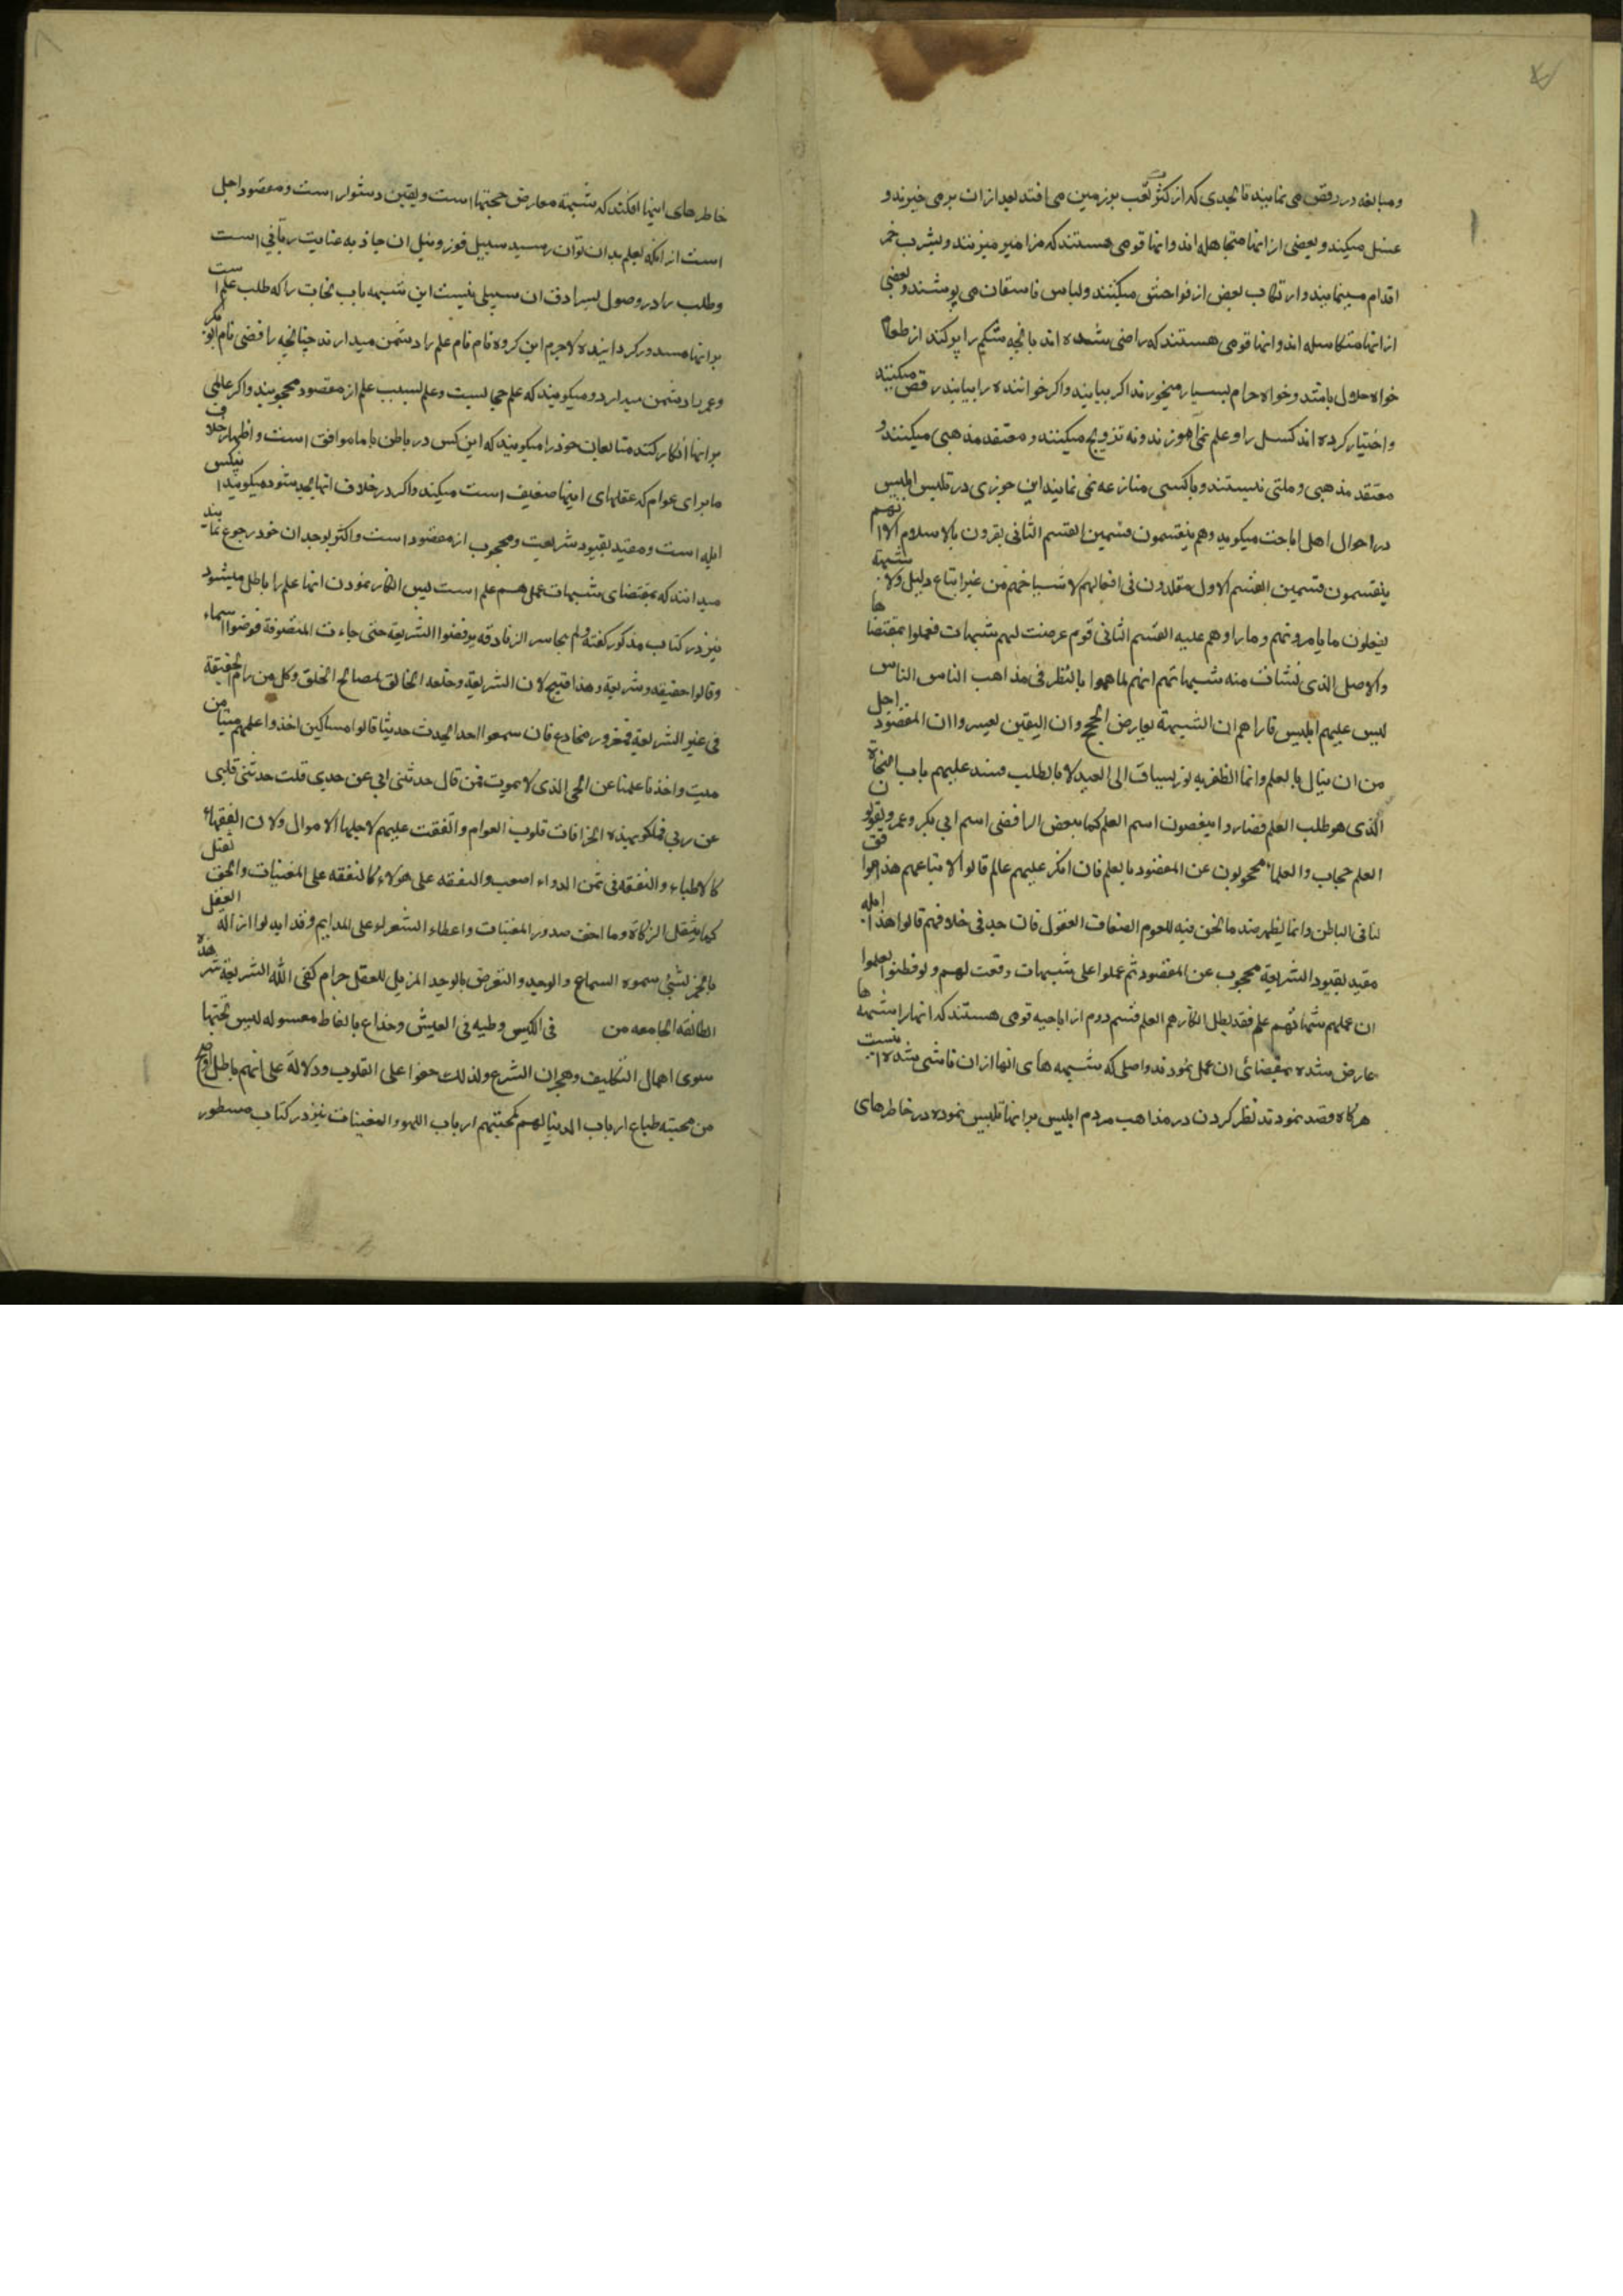 ومبالغه در رقص می نمایند تا بحدی که از کثرت تعب بر زمین می افتند بعد از ان بر می خیزند و
غسل میکنند و بعضی از انها متجاهله اند و انها قومی هستند که مزامیر میزنند و بشرب خمر
اقدام مینمایند و ارتکاب بعض از فواحش میکنند و لباس فاسقان می پوشند و بعضی
از انها متکاسله اند و انها قومی هستند که راضی شده اند بانچه شکم را پر کند از طعام
خواه حلال باشد و خواه حرام بسیار میخورند اکر بیابند و اکر خواننده را بیابند رقص میکنند
و اختیار کرده اند کسل را و علم نمی اموزند و نه تزویج میکنند و معتقد مذهبی میکنند و
معتقد مذهبی و ملتی نیستند و باکسی منازعه نمی نمایند ابن جوزی در تلبیس ابلیس
در احوال اهل اباحت میکوید وهم ینقسمون قسمین القسم الثانی یقرون بالاسلام الا انهم
ینقسمون قسمین القسم الاول مقلدون فی افعالهم لاشیاخهم من غیر اتباع دلیل ولا شبهة
یفعلون ما یامرونهم وما راوهم علیه القسم الثانی قوم عرضت لهم شبهات فعملوا بمقتضاها
والاصل الذی نشات منه شبهاتهم انهم لما هموا بالنظر فی مذاهب الناس الناس
لبس علیهم ابلیس فاراهم ان الشبهة یعارض الحجج وان الیقین لعیسر وان المقصود اجل
من ان ینال بالعلم وانما الظفر به رزق یساق الی العبد لا بالطلب فسد علیهم باب النجاة
الذی هو طلب العلم فصاروا یبغضون اسم العلم کما یبغض الرافضی اسم ابی بکر وعمر ویقولون
العلم حجاب والعلماء محجوبون عن المقصود بالعلم فان انکر علیهم عالم قالوا لاتباعهم هذا موافق
لنا فی الباطن وانما یظهر ضد ما نحن فیه للعوام الضعاف العقول فان جد فی خلافهم قالوا هذا ابله
مقید بقیود الشریعة محجوب عن المقصود ثم عملوا علی شبهات وقعت لهم ولو فطنوا لعلموا
ان عملهم بشبهاتهم علم فقد بطل انکارهم العلم قسم دوم از اباحیه قومی هستند که انها را شبهها
عارض شده بمقتضائی ان عمل نمودند و اصلی که شبهه های انها از ان ناشی شده انست
هرکاه قصد نمودند نظر کردن در مذاهب مردم ابلیس بر انها تلبیس نموده در خاطرهای
خاطرهای اینها افکند که شبهه معارض حجتها است و یقین دشوار است و مقصود اجل
است از انکه بعلم بدان توان رسید سبیل فوز و نیل ان جاذبه عنایت ربانی است
و طلب را در وصول بسرادق ان سبیلی نیست این شبهه باب نجات را که طلب علم است
بر انها مسدور کردانیده لاجرم این کروه نام نام علم را دشمن میدارند چنانچه رافضی نام ابو بکر
و عمر را دشمن میدارد و میکویند که علم حجابست و علم بسبب علم از مقصود محجوبند و اکر عالمی
بر انها انکار کند متابعان خود را میکویند که این کس در باطن با ما موافق است و اظهار خلاف
ما برای عوام که عقلهای اینها ضعیف است میکند و اکر در خلاف انها بجد شود میکویند اینکس
ابله است و مقید بقیود شریعت و محجوب از مقصود است و اکثر بوجدان خود رجوع نمایند
میدانند که بمقتضای شبهات عمل هم علم است پس انکار نمودن انها علم را باطل میشود
نیز در کتاب مذکور کفته ولم یجاسر الزنادقه یرفضوا الشریعة حتی جاءت المتصوفة فوضعوا اسماء
وقالوا حقیقه وشریعة وهذا قبیح لان الشریعة وضعه الخالق لمصالح الخلق وکل من رام الحقیقة
فی غیر الشریعة فمغرور مخادع فان سمعوا احدا یحدث حدیثا قالوا مساکین اخذوا علمهم میتا من
میت واخذنا علمنا عن الحی الذی لا یموت فمن قال حدثنی ابی عن جدی قلت حدثنی قلبی
عن ربی فملکو بهذه الخرافات قلوب العوام وانفقت علیهم لاجلها الاموال ولان الفقهاء
کالاطباء والنفقه فی ثمن الدواء اصعب والنفقه علی هولاء کالنفقه علی المغنیات والحق یثقل
کما یثقل الزکاة وما اخف صدور المغنیات واعطاء الشعراء علی المدایح وقد ابدلوا ازالة العقل
بالخمر بشئ سموه السماع والوجد والتعرض بالوجد المزیل للعقل حرام کفی الله الشریعة شر هذه
الطائفه الجامعه من فی اللبس وطیبه فی العیش وخداع بالفاظ معسوله لیس تحتها
سوی اهمال التکالیف وهجران الشرع ولذلک خفوا علی القلوب ودلالة علی انهم باطل اوضح
من محبته طباع ارباب الدنیا لهم کمحبتهم ارباب اللهو والمغنیات نیز در کتاب مسطور